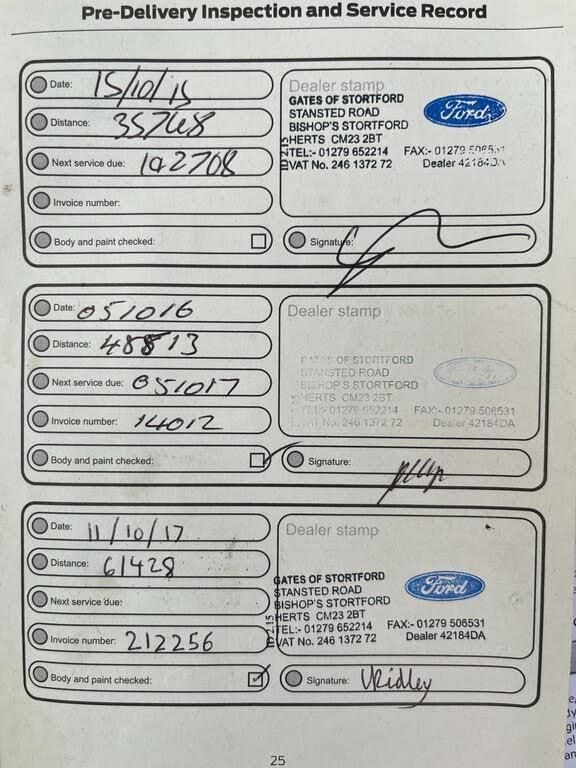 Pre-Delivery Inspection and Service Record
Date: 15/10/15
Distance: 35768
Next service due:
Invoice number:
Body and paint checked:
Dealer stamp
GATES OF STORTFORD
STANSTED ROAD
BISHOP'S STORTFORD
HERTS CM23 2BT
TEL:- 01279 652214 FAX:- 01279 506531
VAT No. 246 1372 72 Dealer 42184DA
ID 2.15
Ford
Signature:
Date: 051016
Distance: 48813
Next service due: 051017
Invoice number: 14012
Body and paint checked:
Dealer stamp
GATES OF STORTFORD
STANSTED ROAD
BISHOP'S STORTFORD
HERTS CM23 2BT
TEL:- 01279 652214 FAX:- 01279 506531
VAT No. 246 1372 72 Dealer 42184DA
Signature:
Date: 11/10/17
Distance: 61428
Next service due:
Invoice number: 212256
Body and paint checked:
Dealer stamp
GATES OF STORTFORD
STANSTED ROAD
BISHOP'S STORTFORD
HERTS CM23 2BT
TEL:- 01279 652214 FAX:- 01279 506531
VAT No. 246 1372 72 Dealer 42184DA
ID 2.15
Ford
Signature: VRidley
25